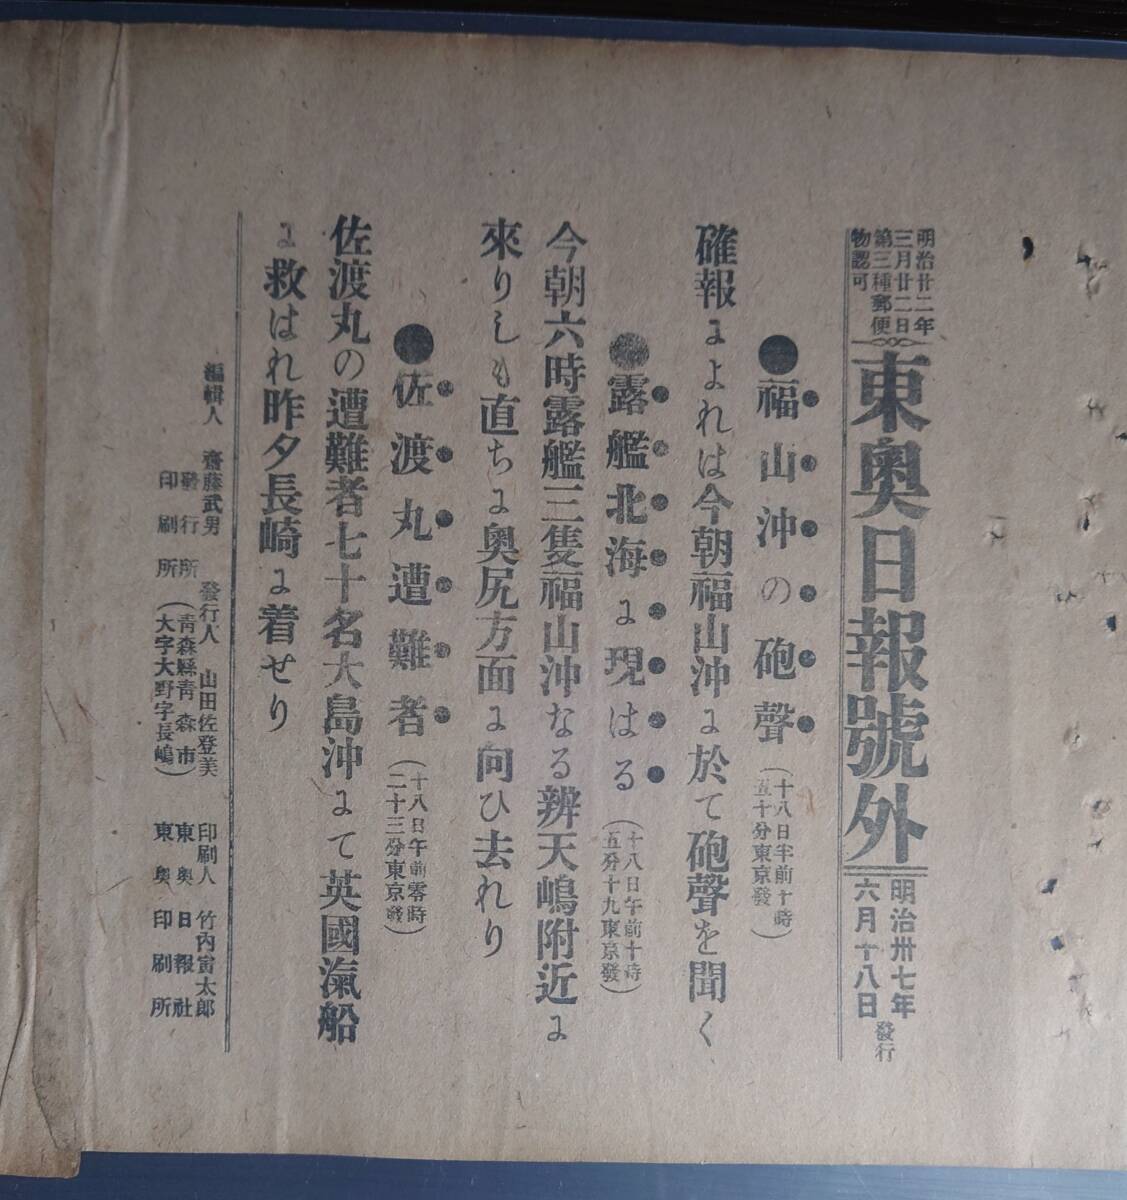 明治廿二年
三月廿二日
第三種郵便
物認可
東奥日報號外
明治卅七年
六月十八日
發行
●福山沖の砲聲
(十八日午前十時
五十分東京發)
確報によれは今朝福山沖に於て砲聲を聞く
●露艦北海に現はる
(十八日午前十時
五分十九東京發)
今朝六時露艦三隻福山沖なる辨天嶋附近に
來りしも直ちに奥尻方面に向ひ去れり
●佐渡丸遭難者
(十八日午前零時
二十三分東京發)
佐渡丸の遭難者七十名大島沖にて英國滊船
に救はれ昨夕長崎に着せり
編輯人 齋藤武男 發行人 山田佐登美 印刷人 竹内寅太郎
發行所 (青森縣青森市 東奥日報社
印刷所 大字大野字長嶋) 東奥印刷所